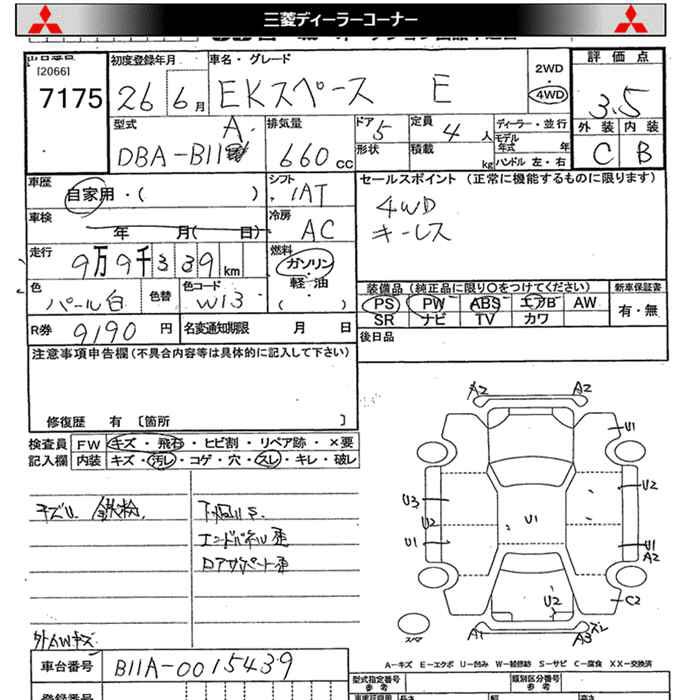 三菱ディーラーコーナー
[2066]
7175
初度登録年月
26年6月
車名・グレード
EKスペース E
2WD
・
4WD
評価点
3.5
外装 内装
C B
型式
DBA-B11A
排気量
660cc
ドア 5
形状
定員 4人
積載 kg
ディーラー・並行
モデル年式 年
ハンドル 左・右
車歴
自家用・( )
シフト
IAT
セールスポイント (正常に機能するものに限ります)
4WD
キーレス
車検
年 月( 日)
冷房
AC
走行
9万9千339km
燃料
ガソリン
・
軽・油
( )
色
パール白
色替
色コード
W13
装備品 (純正品に限り〇をつけてください)
PS PW ABS エアB AW
SR ナビ TV カワ
新車保証書
有・無
R券
9190円
名変通知期限 月 日
後日品
注意事項申告欄(不具合内容等は具体的に記入して下さい)
修復歴 有 [箇所 ]
検査員 FW キズ・飛石・ヒビ割・リペア跡・×要
記入欄 内装 キズ・汚レ・コゲ・穴・スレ・キレ・破レ
キズU 鉄粉
エンドパネル歪
ロアサポート歪
外AWキズ
A2 A2
U1
U3 U2
U2 U1
U1 U1
A2
U2 C2
スペア
A1 A3
車台番号 B11A-0015439
A-キズ E-エクボ U-凹み W-補修跡 S-サビ C-腐食 XX-交換済
型式指定番号
参考
類別区分番号
参考
登録番号
長さ 幅 高さ